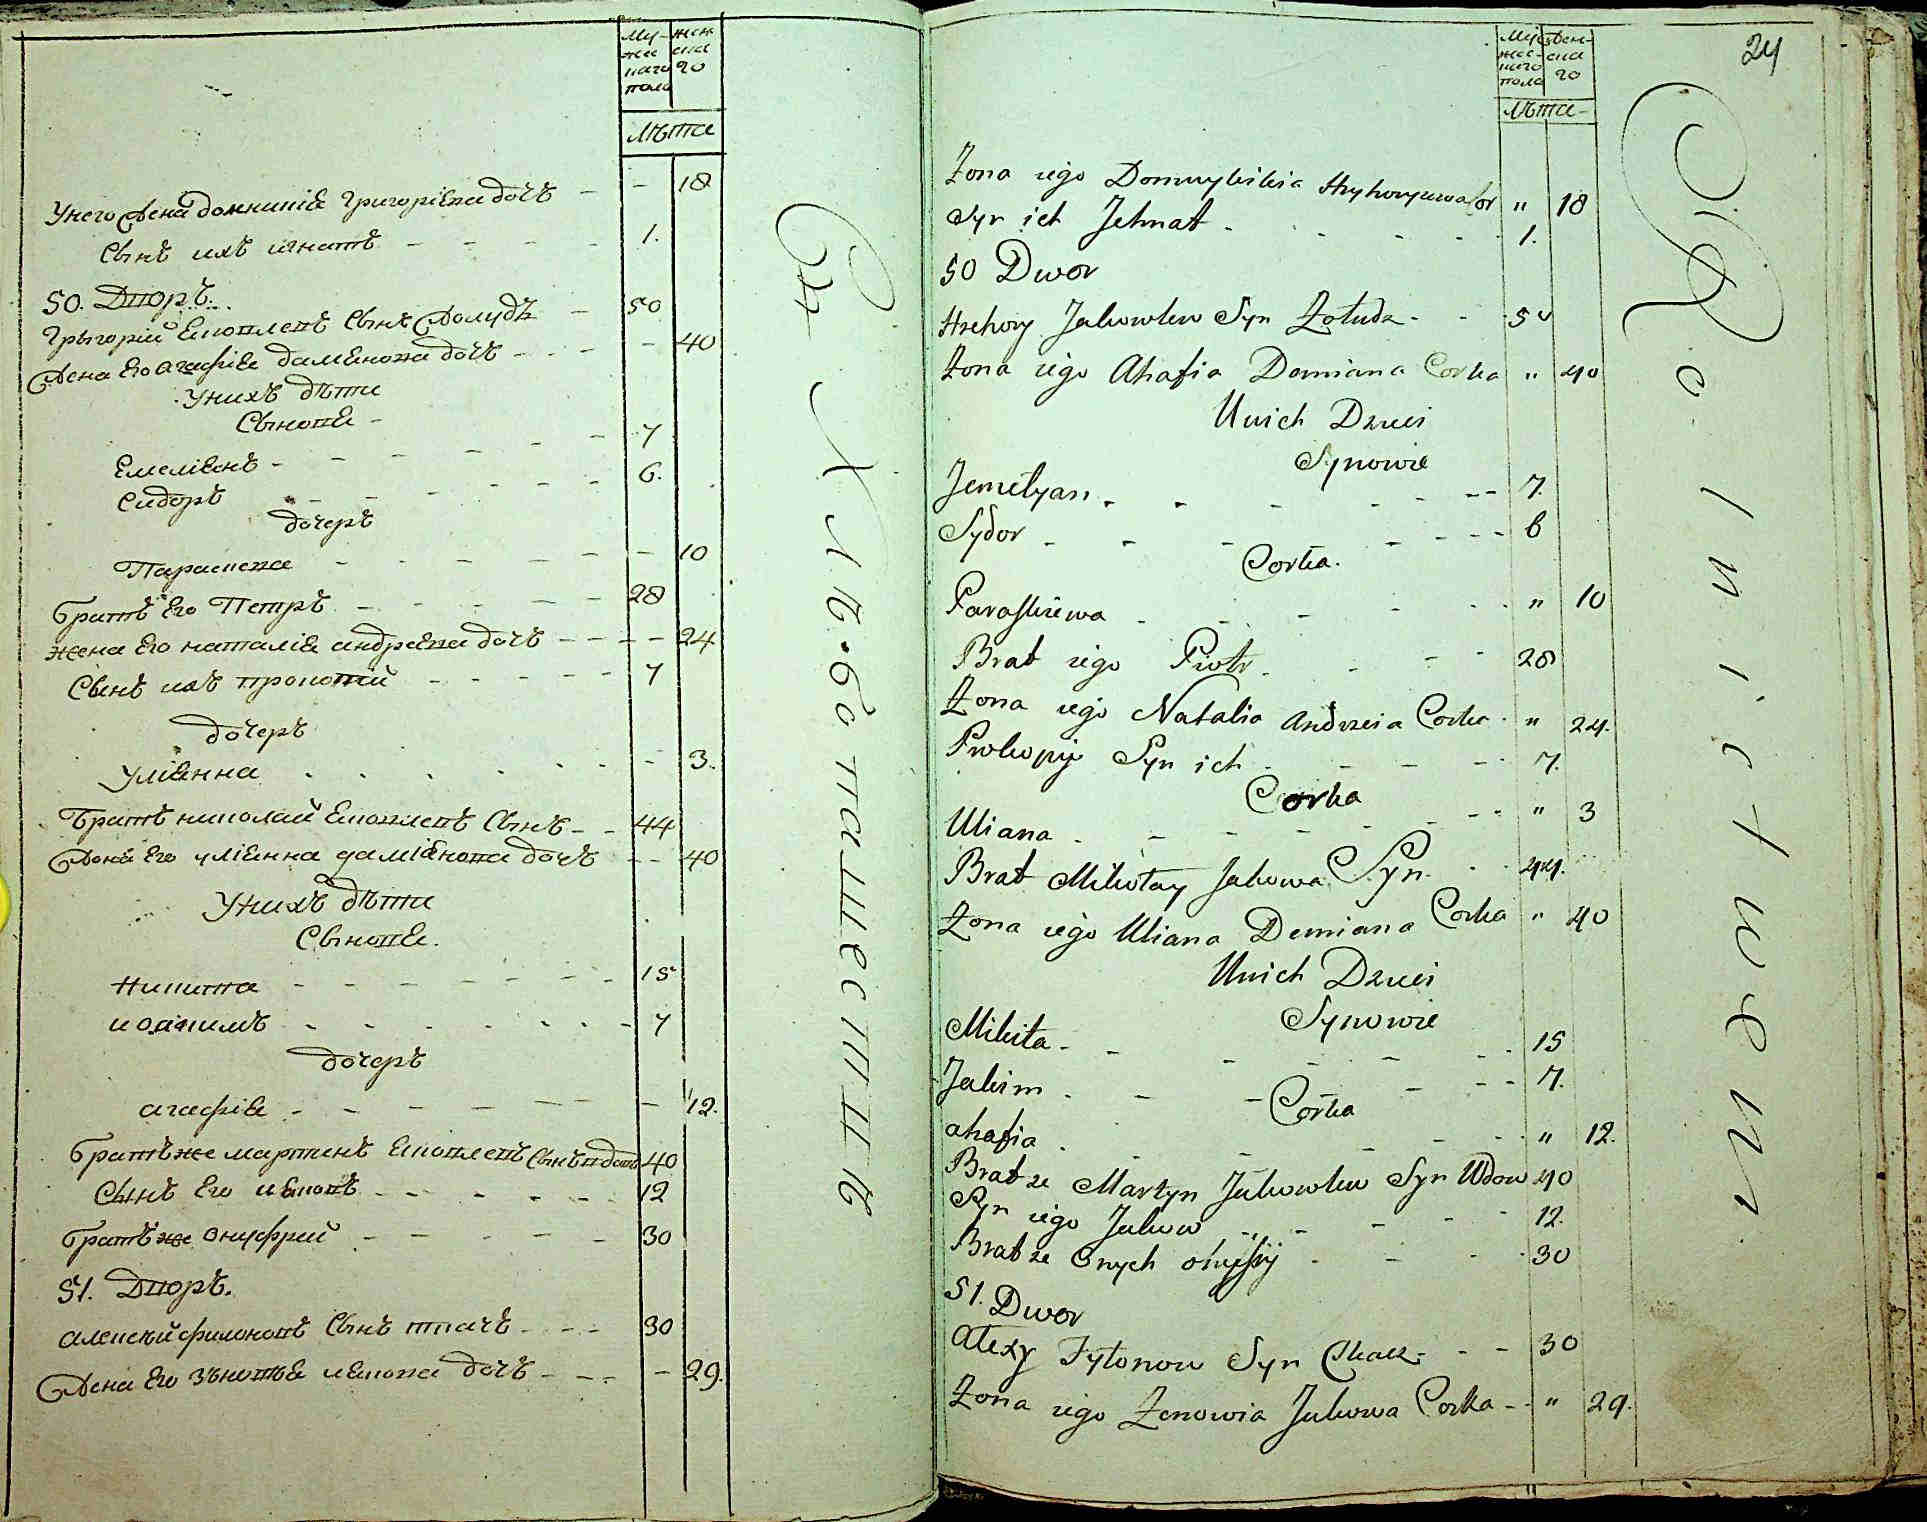 Му-
же
наго
пола
жен
ска
го
Лѣта
Унего Жена домникіа Григоріева дочь - - 18
Сынъ ихъ игнатъ - - - - 1.
50. Дворъ.
Григорій Ековлевъ Сынъ Жолудь - 50
Жена Его Агафіа даміанова дочь - - - - 40
Унихъ дѣти
Сынова -
Емеліанъ - - - - - - 7
Сидоръ - - - - - - 6.
дочеръ
Параскева - - - - - - 10
братъ Его Петръ - - - - - 28
жена Его наталіа андреева дочь - - - - 24
Сынъ ихъ прокопій - - - - - 7
дочеръ
уліанна . . . . . . - 3.
Братъ николай Ековлевъ Сынъ - - 44
Жена Его уліанна даміанова дочь - - 40
Унихъ дѣти
Сынова.
никита - - - - - - 15
иоакимъ - - - - - - 7
дочеръ
агафіа - - - - - - - 12.
братъ же мартинъ Ековлевъ Сынъ вдовъ 40
Сынъ Его иаковъ - - - - - 12
братъ же Онуфрей - - - - - 30
51. Дворъ.
алексѣй филоновъ Сынъ ткачъ - - - - 30
Жена Его Зѣновіа иакова дочь - - - - 29.
Сих лѣ.бо па шествнѣ
24
Му-
же-
наго
пола
жен-
ска
го
Лѣта-
Żona iego Domnykikia Hryhoryewa Cor " 18
Syn ich Jehnat - - - - - 1.
50 Dwor
Hrehory Jakowlew Syn Żołudz - - - 50
Żona iego Ahafia Demiana Corka " 40
Unich Dzieci
Synowie
Jemelyan - - - - - - 7.
Sydor - - - - - - - 6
Corka.
Paraskiewa - - - - - " 10
Brat iego Piotr - - - - 28
Żona iego Natalia Andrzeia Corka - " 24.
Prokopij Syn ich - - - - - 7.
Corka
Uliana - - - - - - - " 3
Brat Mikołay Jakowa Syn - - 44.
Żona iego Uliana Demiana Corka " 40
Unich Dzieci
Synowie
Mikita - - - - - - - 15
Jakim - - - - - - 7.
Corka
ahafia - - - - - - " 12.
Brat ze Martyn Jakowlew Syn Wdow 40
Syn iego Jakow - - - - - 12.
Brat ze Onych
- - - 30
51. Dwor
Alexy Fylonow Syn Tkacz - - - 30
Żona iego Zenowia Jakowa Corka - - " 29.